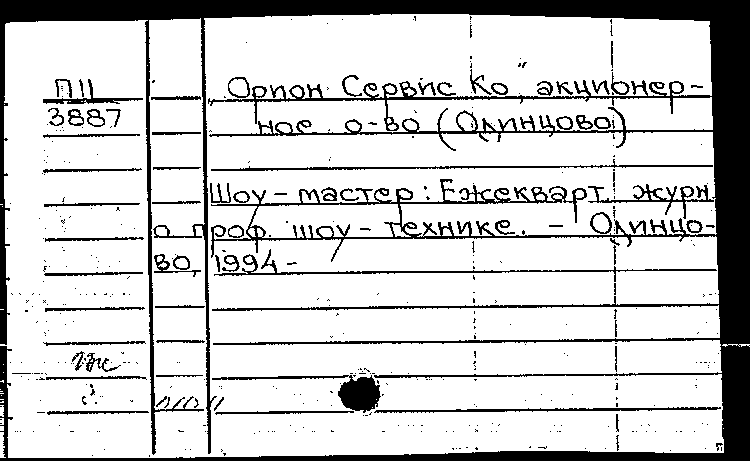 П11
3887
„Орион Сервис Ко", акционер-
ное о-во (Одинцово)
Шоу-мастер: Ежекварт. журн.
о проф. шоу-технике. - Одинцо-
во, 1994 -